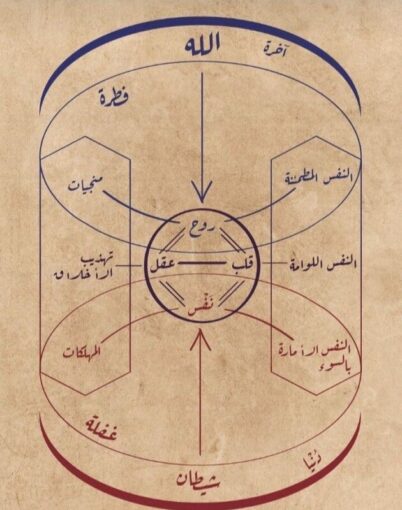 آخرة
الله
فطرة
النفس المطمئنة
منجيات
روح
النفس اللوامة
قلب
عقل
تهذيب
الأخلاق
نَفْس
النفس الأمارة
بالسوء
المهلكات
غفلة
دُنْيا
شيطان